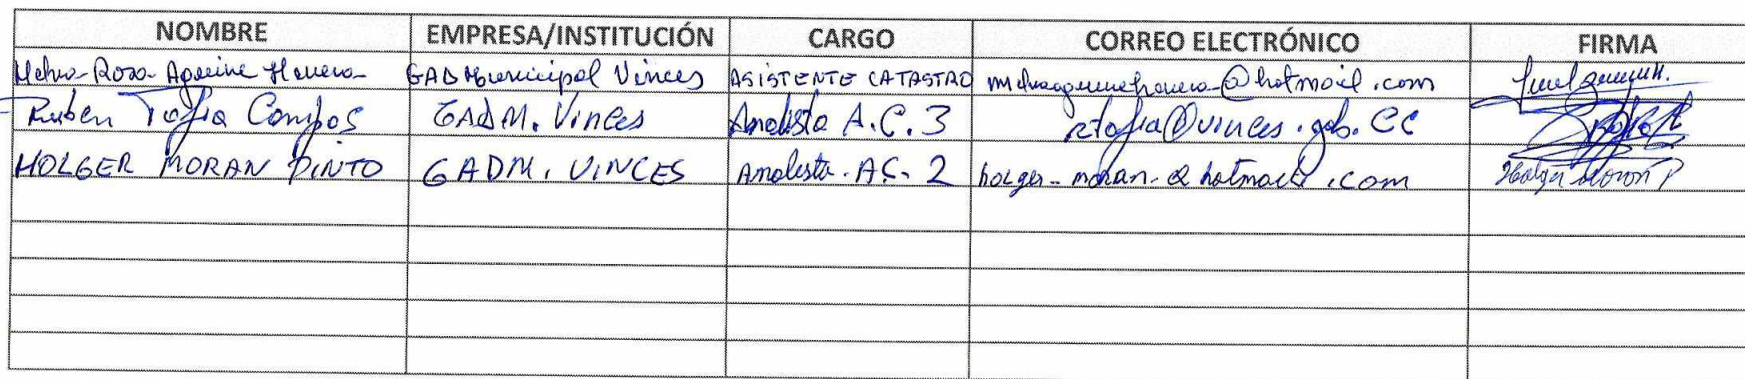 NOMBRE EMPRESA/INSTITUCIÓN CARGO CORREO ELECTRÓNICO FIRMA
Melva Rosa Aguirre Herrera GAD Municipal Vinces ASISTENTE CATASTRO @hotmail.com
Ruben Tafia Campos GADM. Vinces Analista A.C. 3 rtafia@vinces.gob.ec
HOLGER MORAN PINTO GADM. VINCES Analista. AC. 2 holger-moran-@hotmail.com Holger Moran P